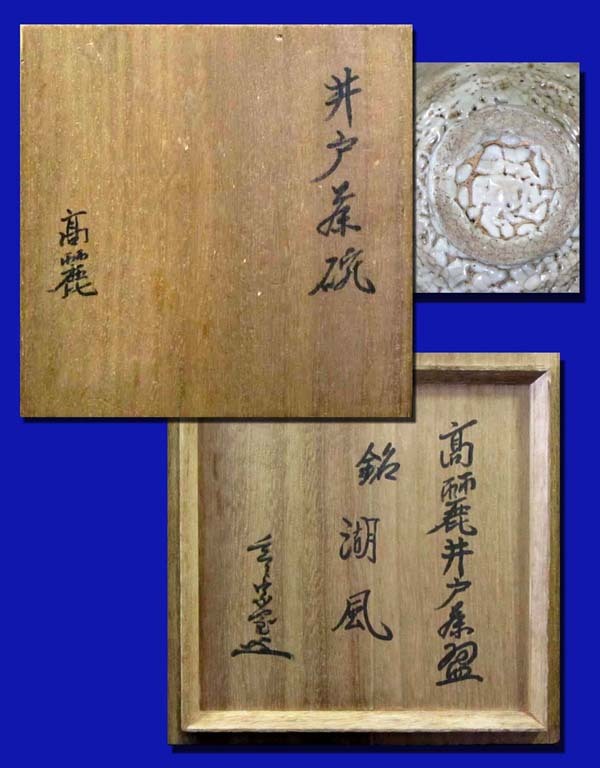 井戸茶碗
高麗
高麗井戸茶盌
銘 湖風